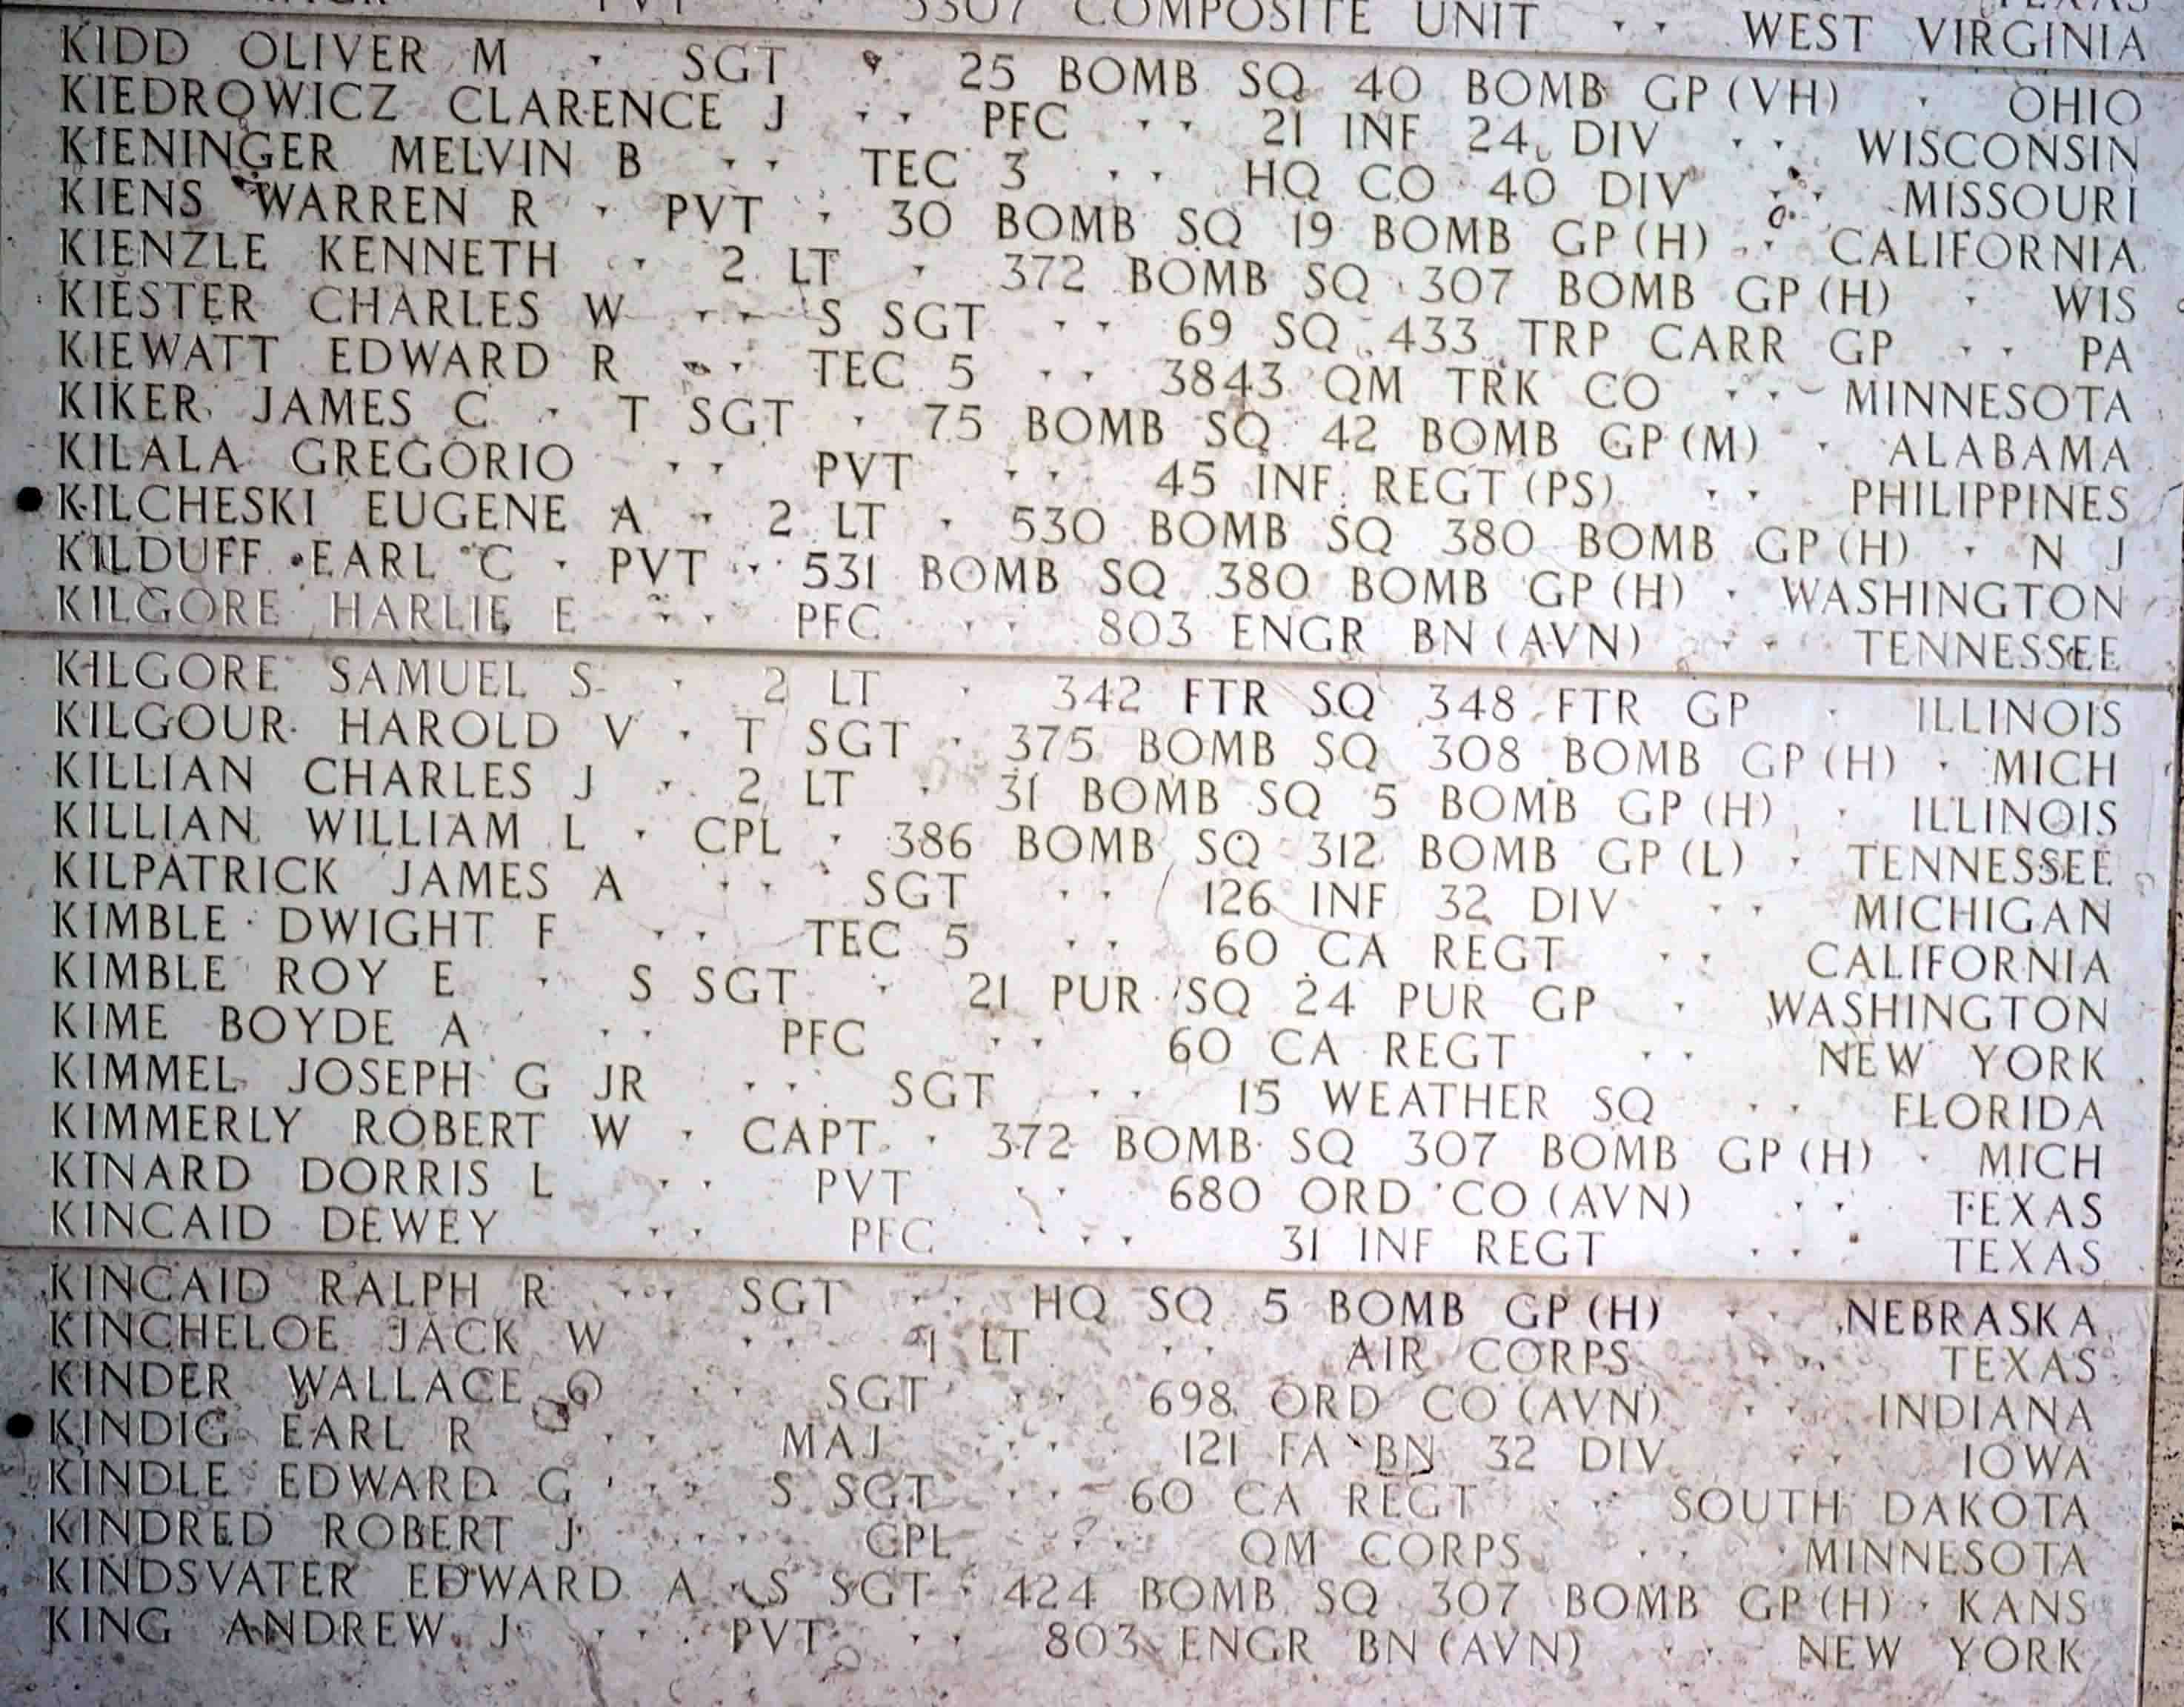 PVT 5307 COMPOSITE UNIT WEST VIRGINIA
KIDD OLIVER M · SGT · 25 BOMB SQ 40 BOMB GP (VH) · OHIO
KIEDROWICZ CLARENCE J · · PFC · · 21 INF 24 DIV · · WISCONSIN
KIENINGER MELVIN B · · TEC 3 · · HQ CO 40 DIV · · MISSOURI
KIENS WARREN R · PVT · 30 BOMB SQ 19 BOMB GP (H) · CALIFORNIA
KIENZLE KENNETH · 2 LT · 372 BOMB SQ 307 BOMB GP (H) · WIS
KIESTER CHARLES W · · S SGT · · 69 SQ 433 TRP CARR GP · · PA
KIEWATT EDWARD R · · TEC 5 · · 3843 QM TRK CO · · MINNESOTA
KIKER JAMES C · T SGT · 75 BOMB SQ 42 BOMB GP (M) · ALABAMA
KILALA GREGORIO · · PVT · · 45 INF REGT (PS) · · PHILIPPINES
KILCHESKI EUGENE A · 2 LT · 530 BOMB SQ 380 BOMB GP (H) · N J
KILDUFF EARL C · PVT · 531 BOMB SQ 380 BOMB GP (H) · WASHINGTON
KILGORE HARLIE E · · PFC · · 803 ENGR BN (AVN) · · TENNESSEE
KILGORE SAMUEL S · 2 LT · 342 FTR SQ 348 FTR GP · ILLINOIS
KILGOUR HAROLD V · T SGT · 375 BOMB SQ 308 BOMB GP (H) · MICH
KILLIAN CHARLES J · 2 LT · 31 BOMB SQ 5 BOMB GP (H) · ILLINOIS
KILLIAN WILLIAM L · CPL · 386 BOMB SQ 312 BOMB GP (L) · TENNESSEE
KILPATRICK JAMES A · · SGT · · 126 INF 32 DIV · · MICHIGAN
KIMBLE DWIGHT F · · TEC 5 · · 60 CA REGT · · CALIFORNIA
KIMBLE ROY E · S SGT · 21 PUR SQ 24 PUR GP · WASHINGTON
KIME BOYDE A · · PFC · · 60 CA REGT · · NEW YORK
KIMMEL JOSEPH G JR · · SGT · · 15 WEATHER SQ · · FLORIDA
KIMMERLY ROBERT W · CAPT · 372 BOMB SQ 307 BOMB GP (H) · MICH
KINARD DORRIS L · · PVT · · 680 ORD CO (AVN) · · TEXAS
KINCAID DEWEY · · PFC · · 31 INF REGT · · TEXAS
KINCAID RALPH R · · SGT · · HQ SQ 5 BOMB GP (H) · · NEBRASKA
KINCHELOE JACK W · · 1 LT · · AIR CORPS · · TEXAS
KINDER WALLACE O · · SGT · · 698 ORD CO (AVN) · · INDIANA
KINDIG EARL R · · MAJ · · 121 FA BN 32 DIV · · IOWA
KINDLE EDWARD G · · S SGT · · 60 CA REGT · · SOUTH DAKOTA
KINDRED ROBERT J · · CPL · · QM CORPS · · MINNESOTA
KINDSVATER EDWARD A · S SGT · 424 BOMB SQ 307 BOMB GP (H) · KANS
KING ANDREW J · · PVT · · 803 ENGR BN (AVN) · · NEW YORK